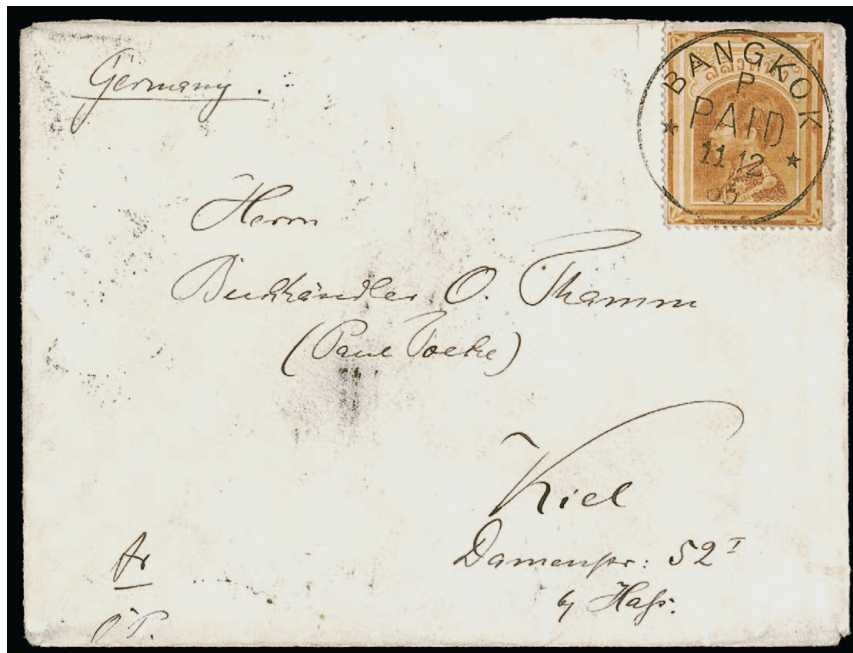 Germany.
BANGKOK
P
PAID
11 12
95
Herrn
Buchhändler O. Thamm
(Paul Toeche)
Kiel
Damenstr: 52 I
by Hass.
fr